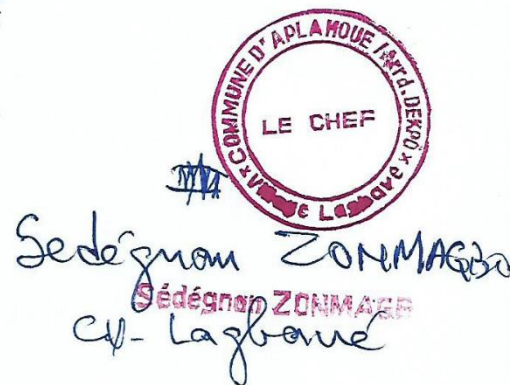 COMMUNE D'APLAHOUE / Arrd. DEKPO x Village Lagbavé x
LE CHEF
Sedégnon ZONMAGBO
Sédégnon ZONMAGB
CV- Lagbavé